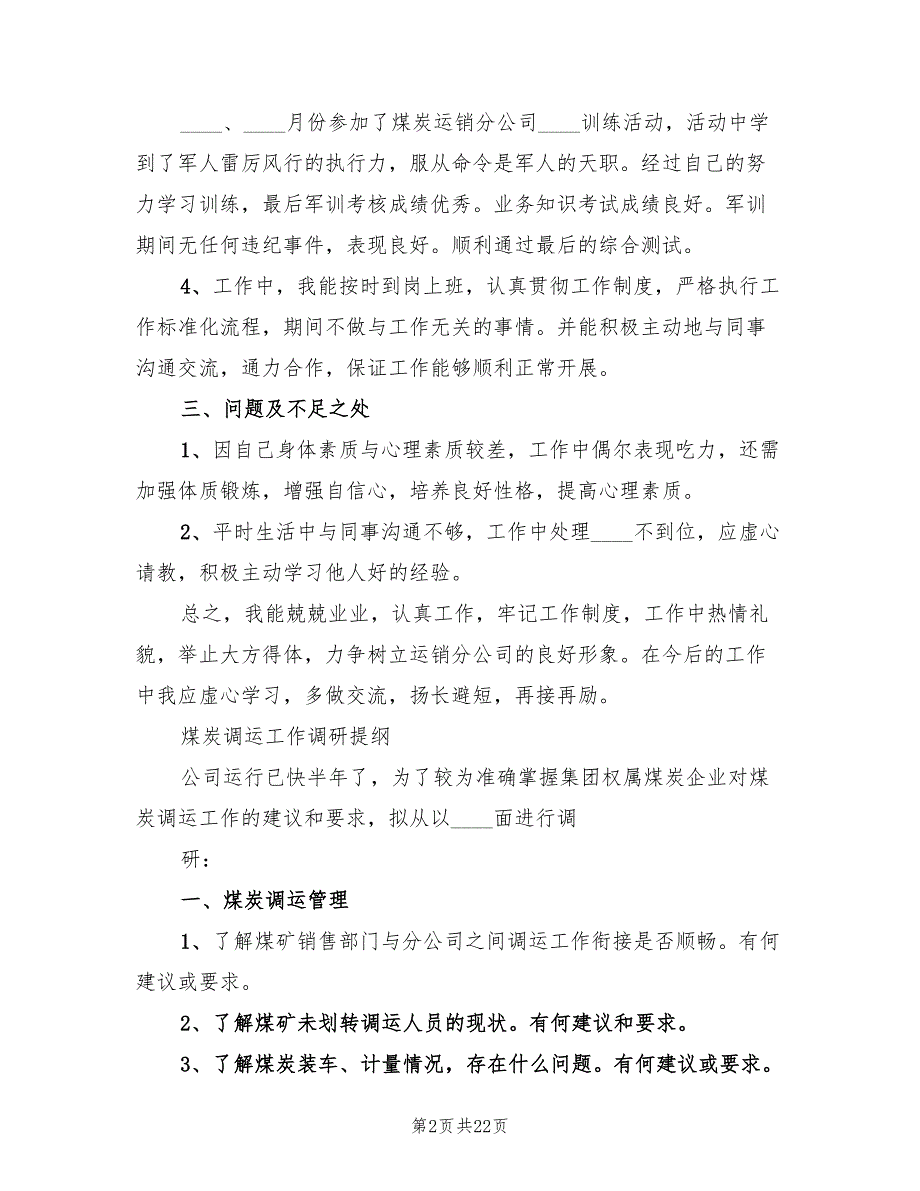 ____、____月份参加了煤炭运销分公司____训练活动，活动中学
到了军人雷厉风行的执行力，服从命令是军人的天职。经过自己的努
力学习训练，最后军训考核成绩优秀。业务知识考试成绩良好。军训
期间无任何违纪事件，表现良好。顺利通过最后的综合测试。
4、工作中，我能按时到岗上班，认真贯彻工作制度，严格执行工
作标准化流程，期间不做与工作无关的事情。并能积极主动地与同事
沟通交流，通力合作，保证工作能够顺利正常开展。
三、问题及不足之处
1、因自己身体素质与心理素质较差，工作中偶尔表现吃力，还需
加强体质锻炼，增强自信心，培养良好性格，提高心理素质。
2、平时生活中与同事沟通不够，工作中处理____不到位，应虚心
请教，积极主动学习他人好的经验。
总之，我能兢兢业业，认真工作，牢记工作制度，工作中热情礼
貌，举止大方得体，力争树立运销分公司的良好形象。在今后的工作
中我应虚心学习，多做交流，扬长避短，再接再励。
煤炭调运工作调研提纲
公司运行已快半年了，为了较为准确掌握集团权属煤炭企业对煤
炭调运工作的建议和要求，拟从以____面进行调
研：
一、煤炭调运管理
1、了解煤矿销售部门与分公司之间调运工作衔接是否顺畅。有何
建议或要求。
2、了解煤矿未划转调运人员的现状。有何建议和要求。
3、了解煤炭装车、计量情况，存在什么问题。有何建议或要求。
第2页共22页